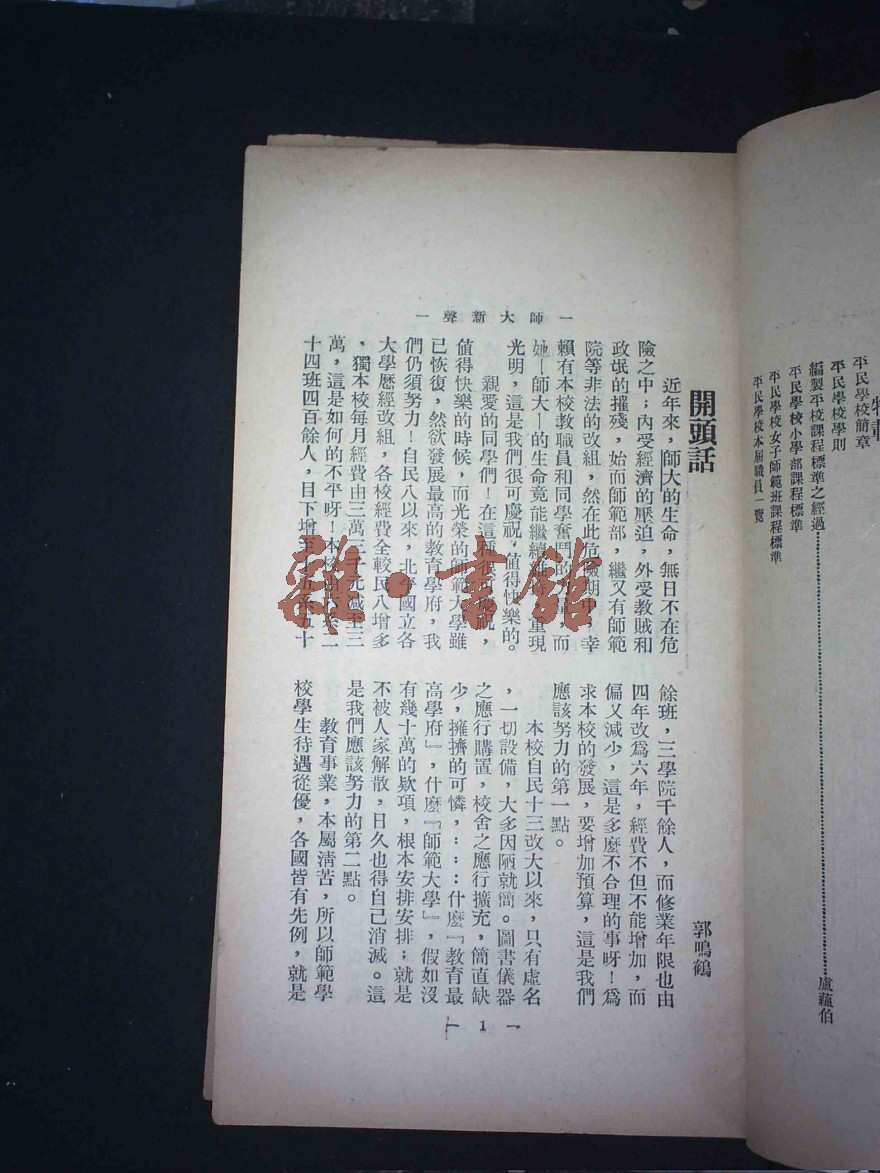 特載
平民學校簡章
平民學校學則
編製平校課程標準之經過……………………盧蘊伯
平民學校小學部課程標準
平民學校女子師範班課程標準
平民學校本屆職員一覽
一師大新聲一
開頭話
郭鳴鶴
近年來,師大的生命,無日不在危
險之中;內受經濟的壓迫,外受教賊和
政氓的摧殘,始而師範部,繼又有師範
院等非法的改組,然在此危險期中,幸
賴有本校教職員和同學奮鬥的力量,而
她—師大—的生命竟能繼續維持,重現
光明,這是我們很可慶祝,值得快樂的。
親愛的同學們!在這很可慶祝,
值得快樂的時候,而光榮的師範大學雖
已恢復,然欲發展最高的教育學府,我
們仍須努力!自民八以來,北平國立各
大學歷經改組,各校經費全較民八增多
,獨本校每月經費由三萬三千元減至三
萬,這是如何的不平呀!本校
十四班四百餘人,目下增至五十
餘班,三學院千餘人,而修業年限也由
四年改爲六年,經費不但不能增加,而
偏又減少,這是多麼不合理的事呀!爲
求本校的發展,要增加預算,這是我們
應該努力的第一點。
本校自民十三改大以來,只有虛名
,一切設備,大多因陋就簡。圖書儀器
之應行購置,校舍之應行擴充,簡直缺
少,擁擠的可憐,:::什麼『教育最
高學府』,什麼『師範大學』,假如沒
有幾十萬的欵項,根本安排安排;就是
不被人家解散,日久也得自己消滅。這
是我們應該努力的第二點。
教育事業,本屬淸苦,所以師範學
校學生待遇從優,各國皆有先例,就是
一 1 一
雜·書館